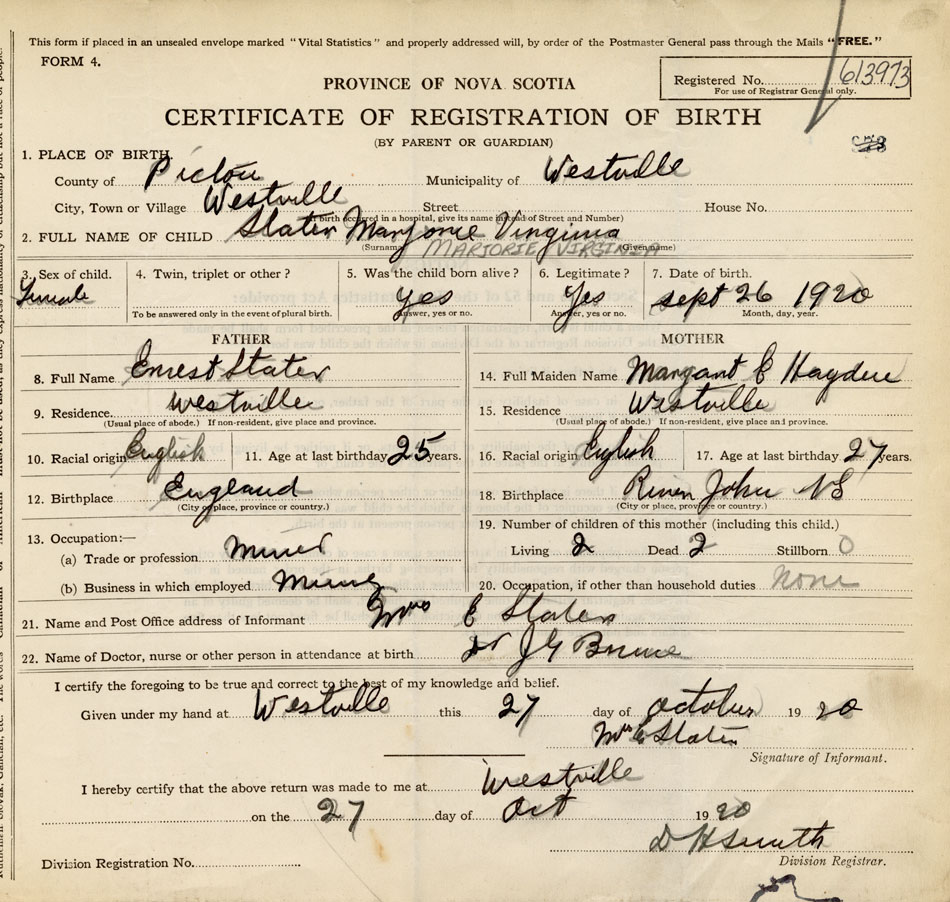 This form if placed in an unsealed envelope marked "Vital Statistics" and properly addressed will, by order of the Postmaster General pass through the Mails "FREE."
FORM 4.
Registered No. 613973
For use of Registrar General only.
PROVINCE OF NOVA SCOTIA
CERTIFICATE OF REGISTRATION OF BIRTH
(BY PARENT OR GUARDIAN)
1. PLACE OF BIRTH
County of Pictou Municipality of Westville
City, Town or Village Westville Street House No.
(If birth occurred in a hospital, give its name instead of Street and Number)
2. FULL NAME OF CHILD Slater Marjorie Virginia
(Surname) MARJORIE VIRGINIA (Given name)
3. Sex of child. 4. Twin, triplet or other? 5. Was the child born alive? 6. Legitimate? 7. Date of birth.
Female yes Yes sept 26 1920
To be answered only in the event of plural birth. Answer, yes or no. Answer, yes or no. Month, day, year.
FATHER MOTHER
8. Full Name Ernest Slater 14. Full Maiden Name Margaret E Hayden
9. Residence. Westville 15. Residence Westville
(Usual place of abode.) If non-resident, give place and province. (Usual place of abode.) If non-resident, give place and province.
10. Racial origin English 11. Age at last birthday 25 years. 16. Racial origin English 17. Age at last birthday 27 years.
12. Birthplace England 18. Birthplace River John NS
(City or place, province or country.) (City or place, province or country.)
13. Occupation:— 19. Number of children of this mother (including this child.)
(a) Trade or profession Miner Living 2 Dead 2 Stillborn 0
(b) Business in which employed Mining 20. Occupation, if other than household duties None
21. Name and Post Office address of Informant Mrs E Slater
22. Name of Doctor, nurse or other person in attendance at birth Dr J G
I certify the foregoing to be true and correct to the best of my knowledge and belief.
Given under my hand at Westville this 27 day of October 1920
Mrs E Slater
Signature of Informant.
I hereby certify that the above return was made to me at Westville
on the 27 day of Oct 1920
D H Smith
Division Registrar.
Division Registration No.